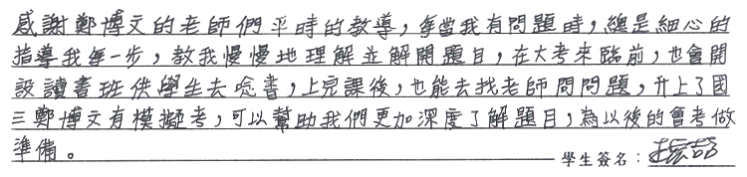 感謝鄭博文的老師們平時的教導，每當我有問題時，總是細心的
指導我每一步，教我慢慢地理解並解開題目，在大考來臨前，也會開
設讀書班供學生去唸書，上完課後，也能去找老師問問題，升上了國
三鄭博文有模擬考，可以幫助我們更加深度了解題目，為以後的會考做
準備。
學生簽名：